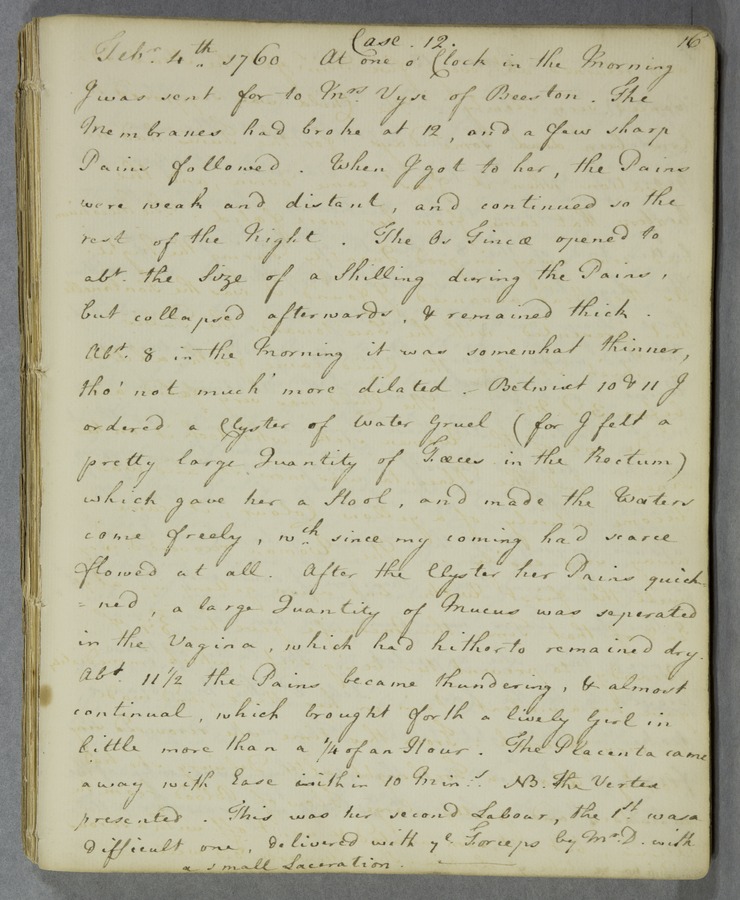 Case. 12.
16
Feb.r 4th. 1760 At one o'Clock in the Morning
I was sent for to Mrs Vyse of Beeston. The
Membranes had broke at 12, and a few sharp
Pains followed. When I got to her, the Pains
were weak and distant, and continued so the
rest of the Night. The Os Tincæ opened to
abt. the Size of a Shilling during the Pains,
but collapsed afterwards, & remained thick.
Abt. 8 in the Morning it was somewhat thinner,
tho' not much more dilated. Betwixt 10 & 11 I
ordered a Clyster of Water Gruel (for I felt a
pretty large Quantity of Fæces in the Rectum)
which gave her a Stool, and made the Waters
come freely, wch. since my coming had scarce
flowed at all. After the Clyster her Pains quick
=ned, a large Quantity of Mucus was seperated
in the Vagina, which had hitherto remained dry.
Abt. 11 1/2 the Pains became thundering, & almost
continual, which brought forth a lively Girl in
little more than a 1/4 of an Hour. The Placenta came
away with Ease within 10 Min.s. NB. the Vertex
presented. This was her second Labour, the 1st. was a
difficult one, delivered with ye. Forceps by Mr. D. with
a small Laceration.